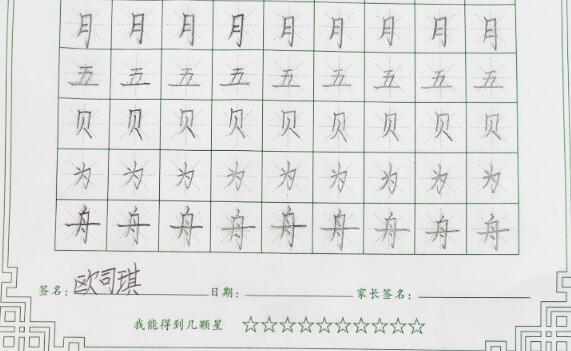 月 月 月 月 月 月 月 月 月
五 五 五 五 五 五 五 五 五
贝 贝 贝 贝 贝 贝 贝 贝 贝
为 为 为 为 为 为 为 为 为
舟 舟 舟 舟 舟 舟 舟 舟 舟
签名：欧司琪 日期： 家长签名：
我能得到几颗星 ☆☆☆☆☆☆☆☆☆☆